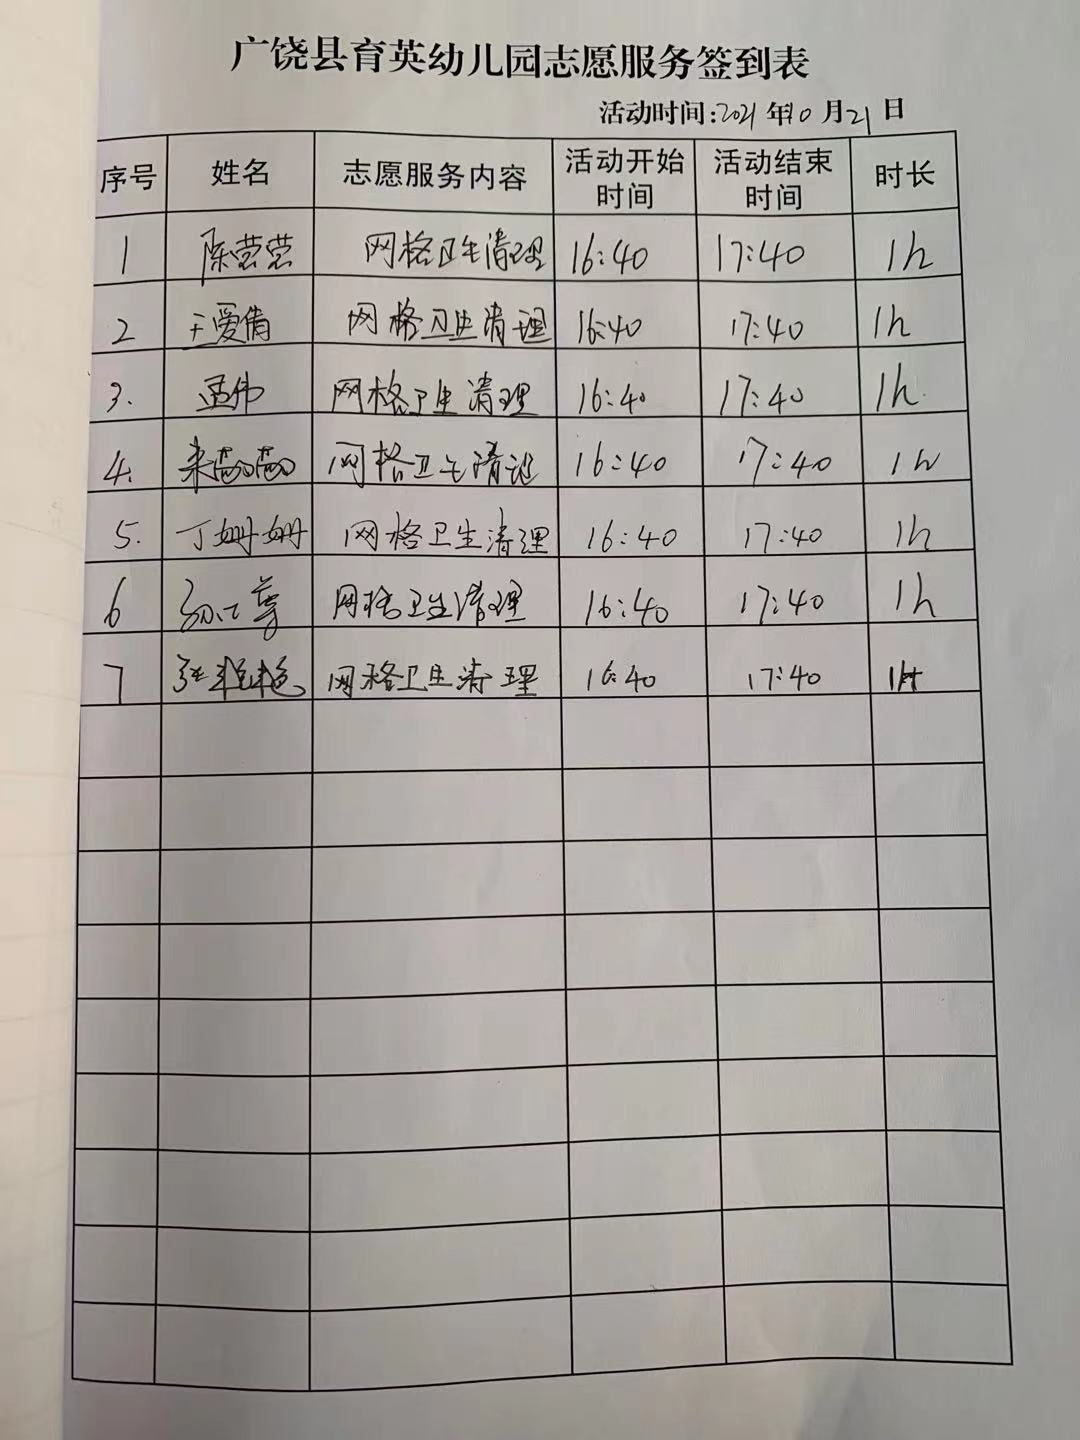 广饶县育英幼儿园志愿服务签到表
活动时间:2021年10月21日
序号 姓名 志愿服务内容 活动开始时间 活动结束时间 时长
1 陈芸芸 网格卫生清理 16:40 17:40 1h
2 王爱倩 网格卫生清理 16:40 17:40 1h
3. 孟伟 网格卫生清理 16:40 17:40 1h
4. 网格卫生清理 16:40 17:40 1h
5. 丁姗姗 网格卫生清理 16:40 17:40 1h
6 网格卫生清理 16:40 17:40 1h
7 张艳艳 网格卫生清理 16:40 17:40 1h